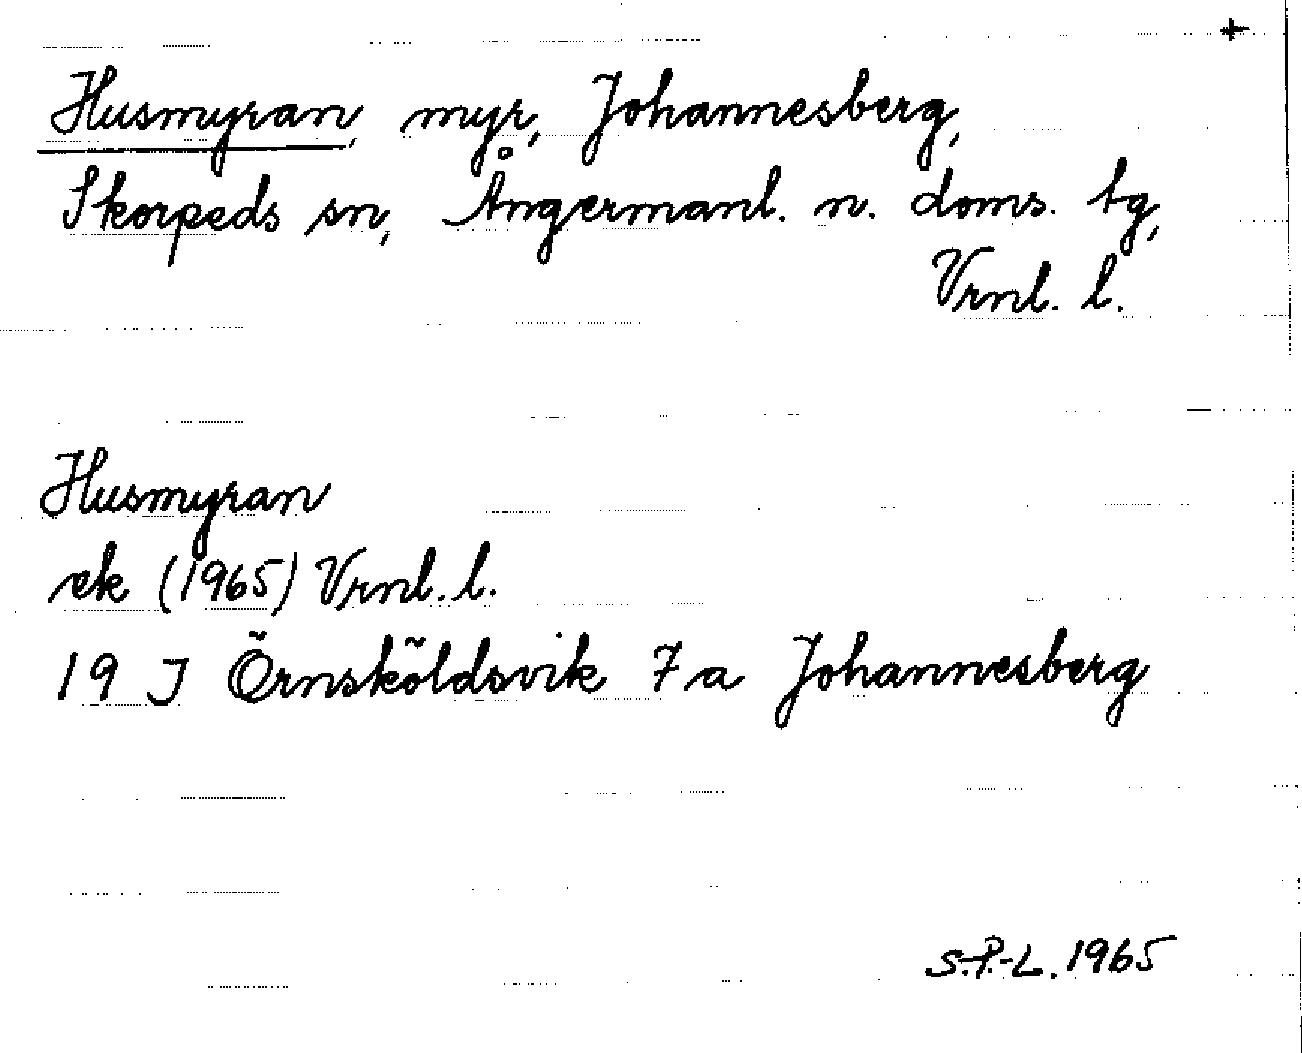 +
Husmyran, myr, Johannesberg,
Skorpeds sn, Ångermanl. n. doms. tg,
Vrnl. l.
Husmyran
ek (1965) Vrnl. l.
19 J Örnsköldsvik 7 a Johannesberg
S.-P.-L. 1965